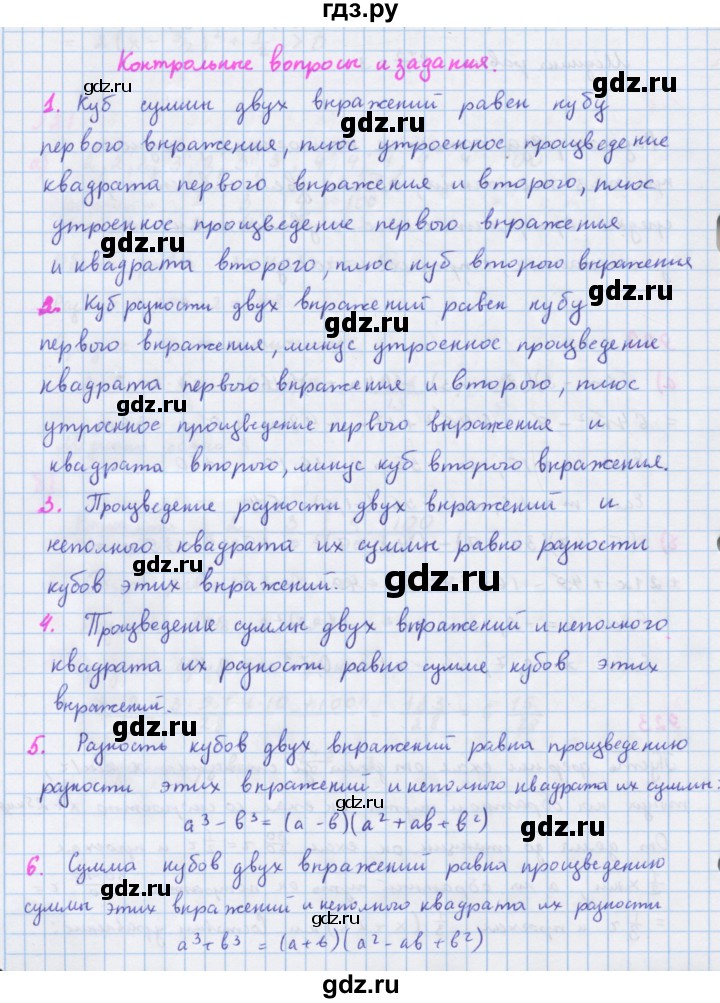 гдз.ру
Контрольные вопросы и задания.
gdz.ru
1. Куб суммы двух выражений равен кубу
gdz.ru
первого выражения, плюс утроенное произведение
квадрата первого выражения и второго, плюс
утроенное произведение первого выражения
gdz.ru
и квадрата второго, плюс куб второго выражения
2. Куб разности двух выражений равен кубу
gdz.ru
первого выражения, минус утроенное произведение
квадрата первого выражения и второго, плюс
gdz.ru
утроенное произведение первого выражения и
квадрата второго, минус куб второго выражения.
3. Произведение разности двух выражений и
gdz.ru
неполного квадрата их суммы равно разности
кубов этих выражений.
gdz.ru
4. Произведение суммы двух выражений и неполного
квадрата их разности равно сумме кубов этих
выражений.
gdz.ru
5. Разность кубов двух выражений равна произведению
разности этих выражений и неполного квадрата их суммы:
gdz.ru
a³ - b³ = (a - b)(a² + ab + b²)
6. Сумма кубов двух выражений равна произведению
gdz.ru
суммы этих выражений и неполного квадрата их разности
gdz.ru
a³ + b³ = (a + b)(a² - ab + b²)
gdz.ru